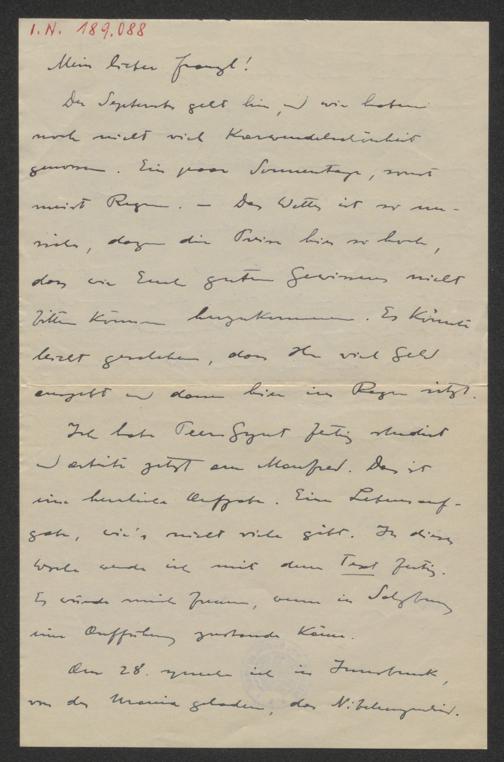 I.N. 189.088
Mein lieber Franzl!
Der September geht hin, u wir haben
noch nicht viel Karwendelschönheit
genossen. Ein paar Sonnentage, sonst
meist Regen. – Das Wetter ist so un-
sicher, dazu die Preise hier so hoch,
dass wir Euch guten Gewissens nicht
bitten können herzukommen. Es könnte
leicht geschehen, dass Ihr viel Geld
ausgebt u dann hier im Regen sitzt.
Ich habe Peer Gynt fertig studiert
u arbeite jetzt am Manfred. Das ist
eine herrliche Aufgabe. Eine Lebensauf-
gabe, wie's nicht viele gibt. In dieser
Woche werde ich mit dem Text fertig.
Es würde mich freuen, wenn in Salzburg
eine Aufführung zustande käme.
Am 28. spreche ich in Innsbruck,
von der geladen, das Nibelungenlied.